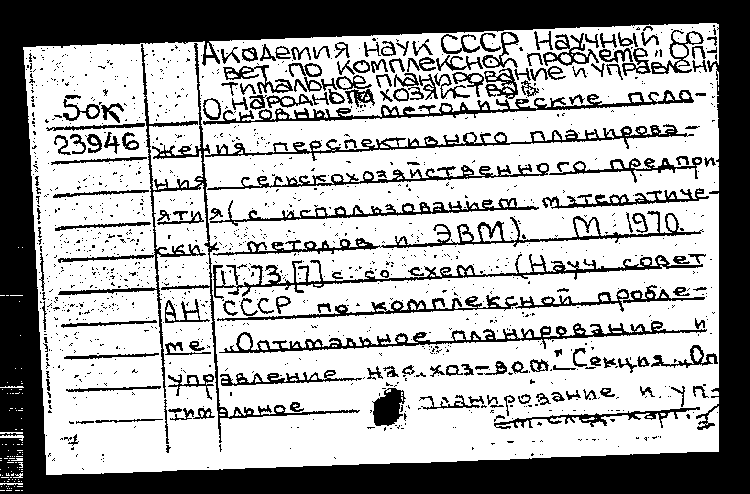 Академия наук СССР. Научный со-
вет по комплексной проблеме „Оп-
тимальное планирование и управлени
народного хозяйства".
5-ок
Основные методические поло-
23946
жения перспективного планирова-
ния сельскохозяйственного предпри-
ятия (с использованием математиче-
ских методов и ЭВМ). М., 1970.
[1], 73, [7] с со схем. (Науч. совет
АН СССР по комплексной пробле-
ме „Оптимальное планирование и
управление нар. хоз-вом." Секция „Оп
тимальное планирование и уп-
См. след. карт. 2